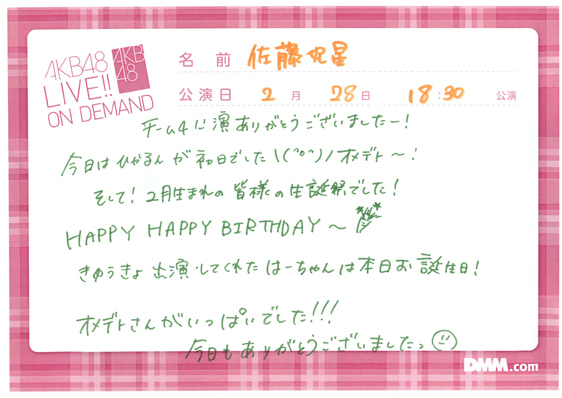 AKB48
LIVE!!
ON DEMAND
AKB
48
名前 佐藤妃星
公演日 2月 28日 18:30 公演
チーム4公演ありがとうございましたー!
今日はひかるんが初日でした\(^o^)/オメデト〜!
そして!2月生まれの皆様の生誕祭でした!
HAPPY HAPPY BIRTHDAY〜
きゅうきょ出演してくれたはーちゃんは本日お誕生日!
オメデトさんがいっぱいでした!!!
今日もありがとうございましたっ
DMM.com